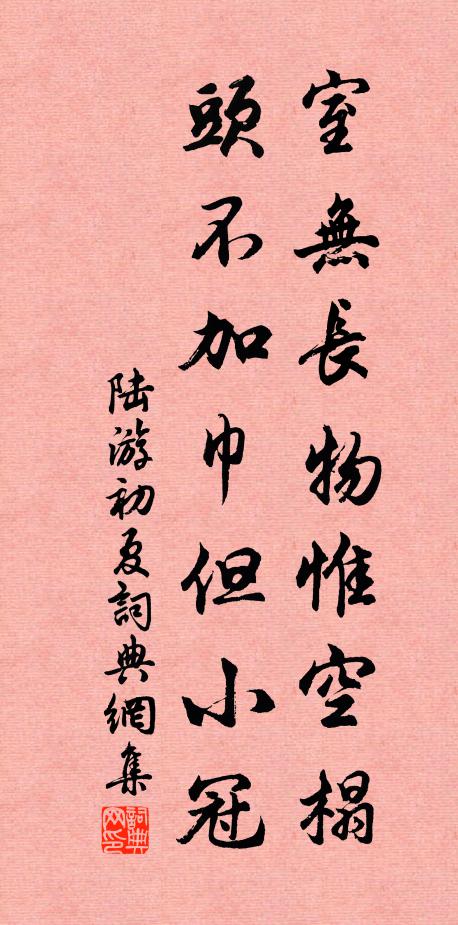 室無長物惟空榻
頭不加巾但小冠
陆游初夏詞典網集
詞典网印